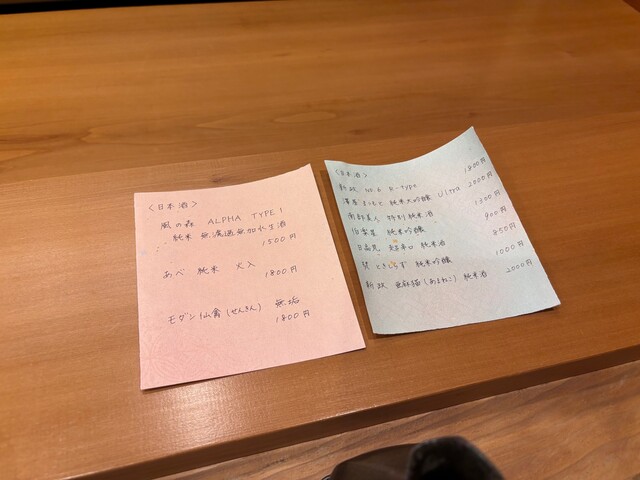 〈日本酒〉
風の森 ALPHA TYPE1
純米 無濾過無加水生酒
1500円
あべ 純米 火入
1800円
モダン仙禽(せんきん) 無垢
1800円
〈日本酒〉
新政 No.6 R-type 1800円
澤屋まつもと 純米大吟醸 Ultra 2000円
南部美人 特別純米酒 1300円
伯楽星 純米吟醸 900円
日高見 超辛口 純米酒 850円
賀 ときしらず 純米吟醸 1000円
新政 亜麻猫(あまねこ) 純米酒 2000円